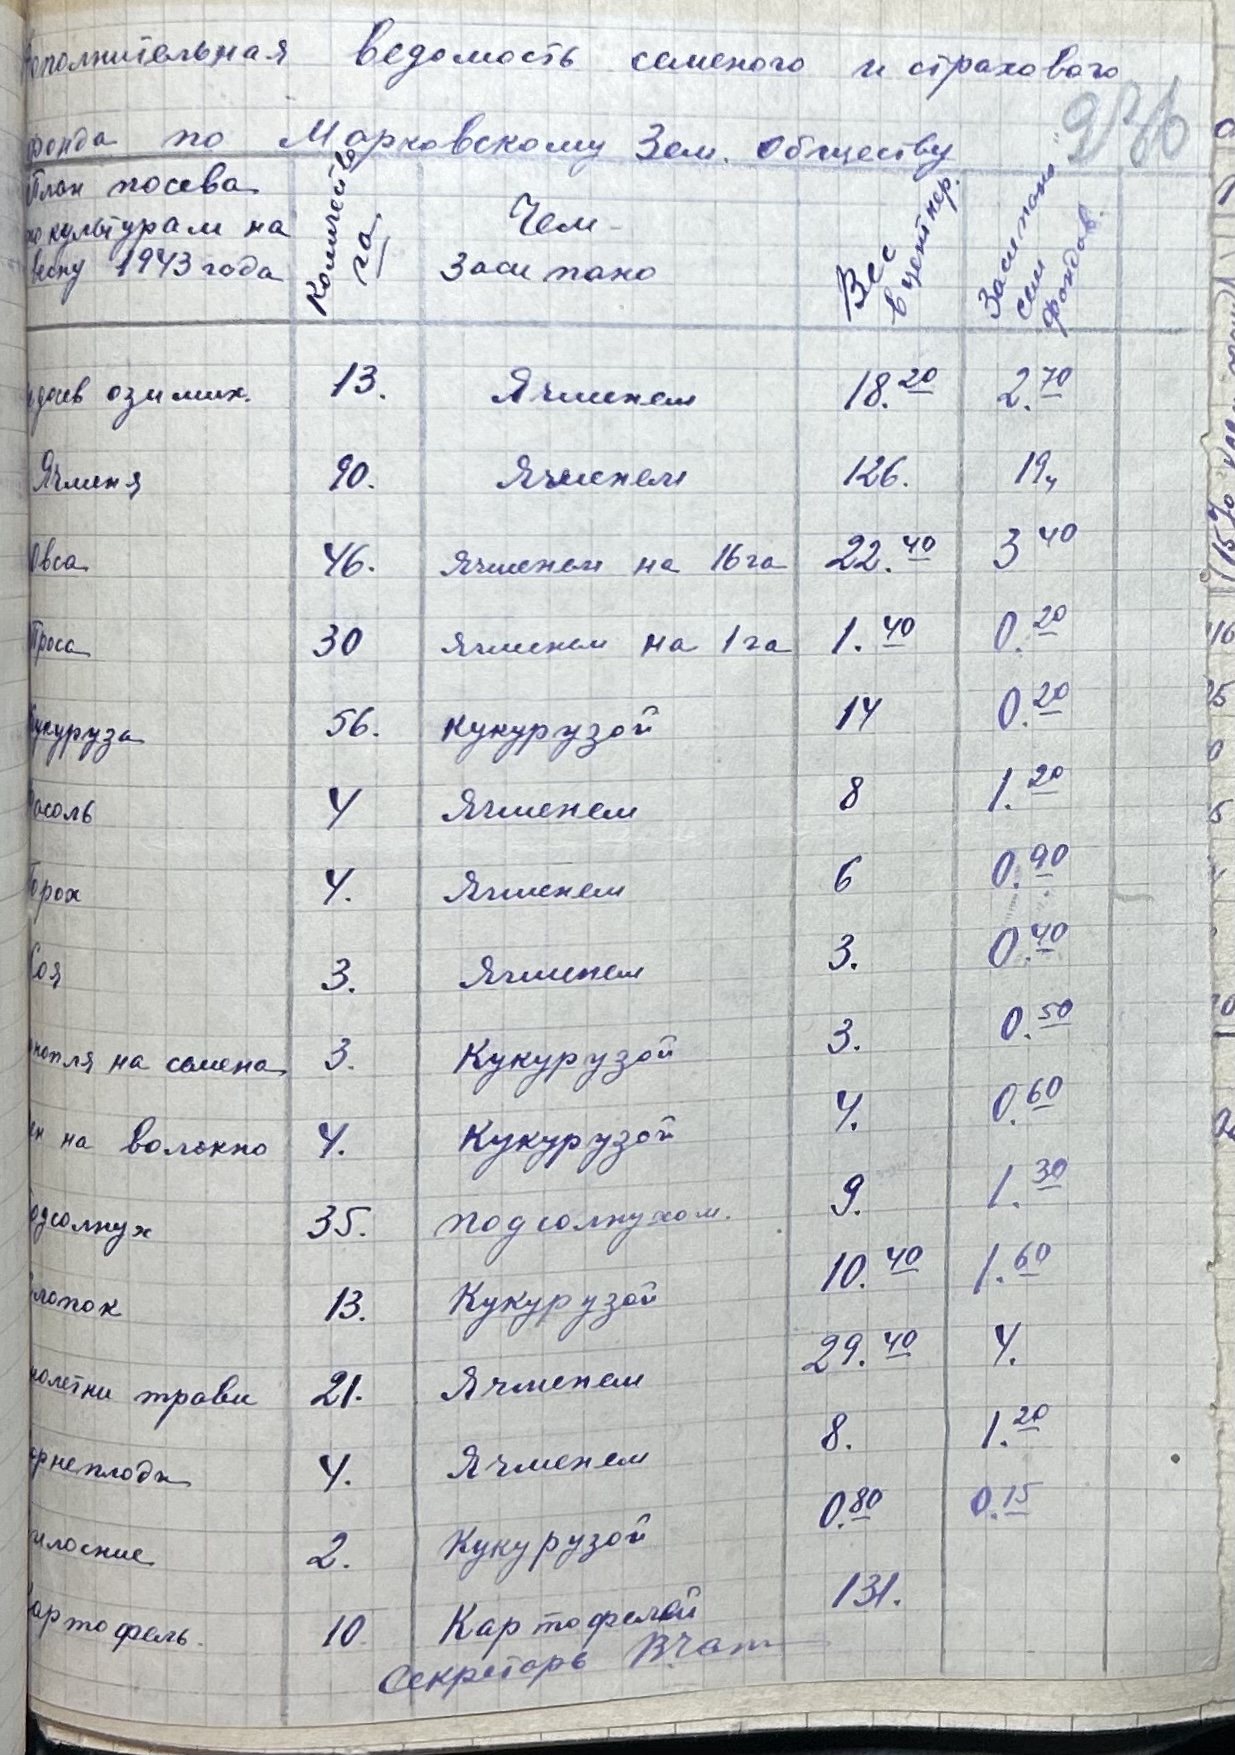 ополнительная ведомость семеного и страхового
фонда по Марковскому Зем. обществу
План посева
по культурам на
весну 1943 года
Количеств
га
Чем
Засипано
Вес
в центнер.
Засипано
сем
фондов.
одсев озимих. 13. Ячменем 18.20 2.70
Ячменя 90. Ячменем 126. 19,
Овса 46. Ячменем на 16 га 22.40 3 40
Проса 30 Ячменем на 1 га 1.40 0.20
Кукуруза 56. Кукурузой 14 0.20
асоль 4 Ячменем 8 1.20
Горох 4. Ячменем 6 0.90
Соя 3. Ячменем 3. 0.40
нопля на семена 3. Кукурузой 3. 0.50
ен на волокно 4. Кукурузой 4. 0.60
одсолнух 35. подсолнухом. 9. 1.30
лопок 13. Кукурузой 10.40 1.60
нолетни трави 21. Ячменем 29.40 4.
орнеплоди 4. Ячменем 8. 1.20
илосние 2. Кукурузой 0.80 0.15
артофель. 10 Картофелей 131.
Секреторь